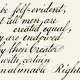 be self-evident,
t all men are
created equal,
y are endowed
by their Creator
with certain
unalienable Rights